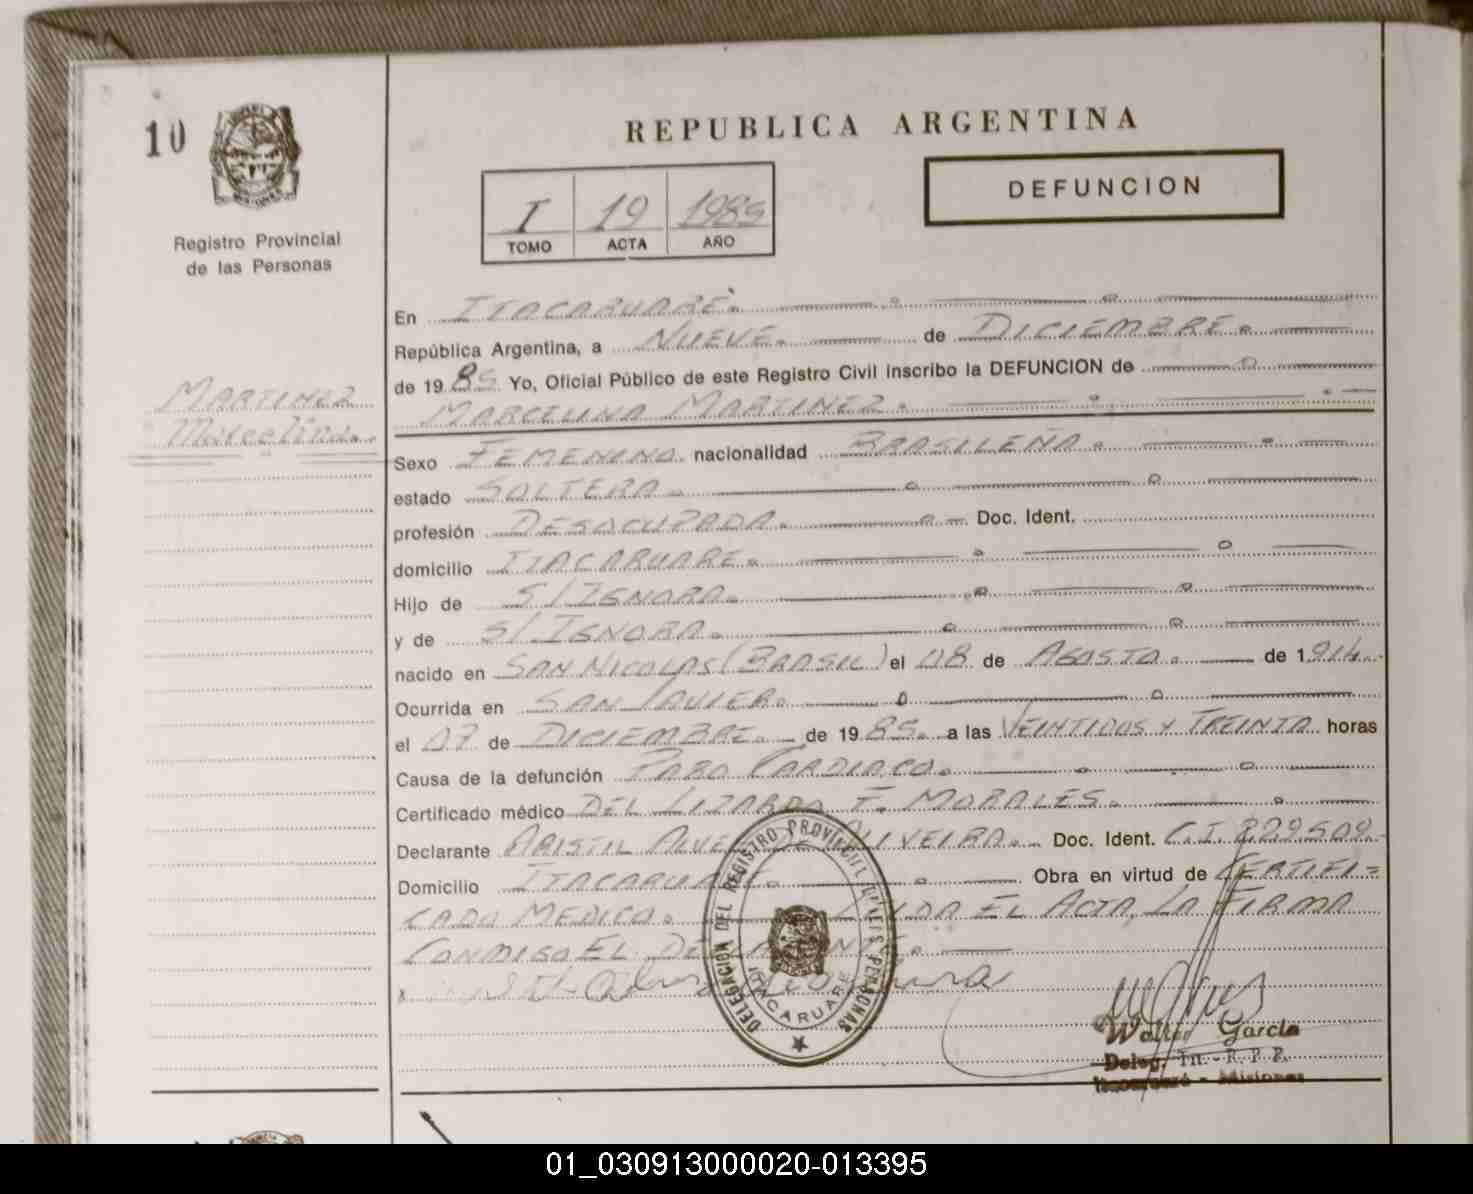 10
Registro Provincial
de las Personas
MARTINEZ
Marcelina.
REPUBLICA ARGENTINA
I 19 1985
TOMO ACTA AÑO
DEFUNCION
En ITACARUARÉ.
República Argentina, a NUEVE. de DICIEMBRE.
de 1985 Yo, Oficial Público de este Registro Civil inscribo la DEFUNCION de
MARCELINA MARTINEZ.
Sexo FEMENINO. nacionalidad BRASILEÑA.
estado SOLTERA.
profesión DESOCUPADA. Doc. Ident.
domicilio ITACARUARE.
Hijo de S/IGNORA.
y de S/IGNORA.
nacido en SAN NICOLAS (BRASIL) el 08 de AGOSTO. de 1914.
Ocurrida en SAN JAVIER.
el 07 de DICIEMBRE. de 1985. a las VEINTIDOS Y TREINTA horas
Causa de la defunción PARO CARDIACO.
Certificado médico DEL LIZARDO F. MORALES.
Declarante ARISTIL OLIVEIRA. Doc. Ident. C.I.
Domicilio ITACARUARE. Obra en virtud de CERTIFI=
CADO MEDICO. EL ACTA, LA FIRMA
CONMIGO EL DECLARANTE.
DELEGACION DEL REGISTRO PROVINCIAL DE LAS PERSONAS
ITACARUARE
Walter García
Deleg. Tit. - R. P. P.
Itacaruaré - Misiones
01_030913000020-013395